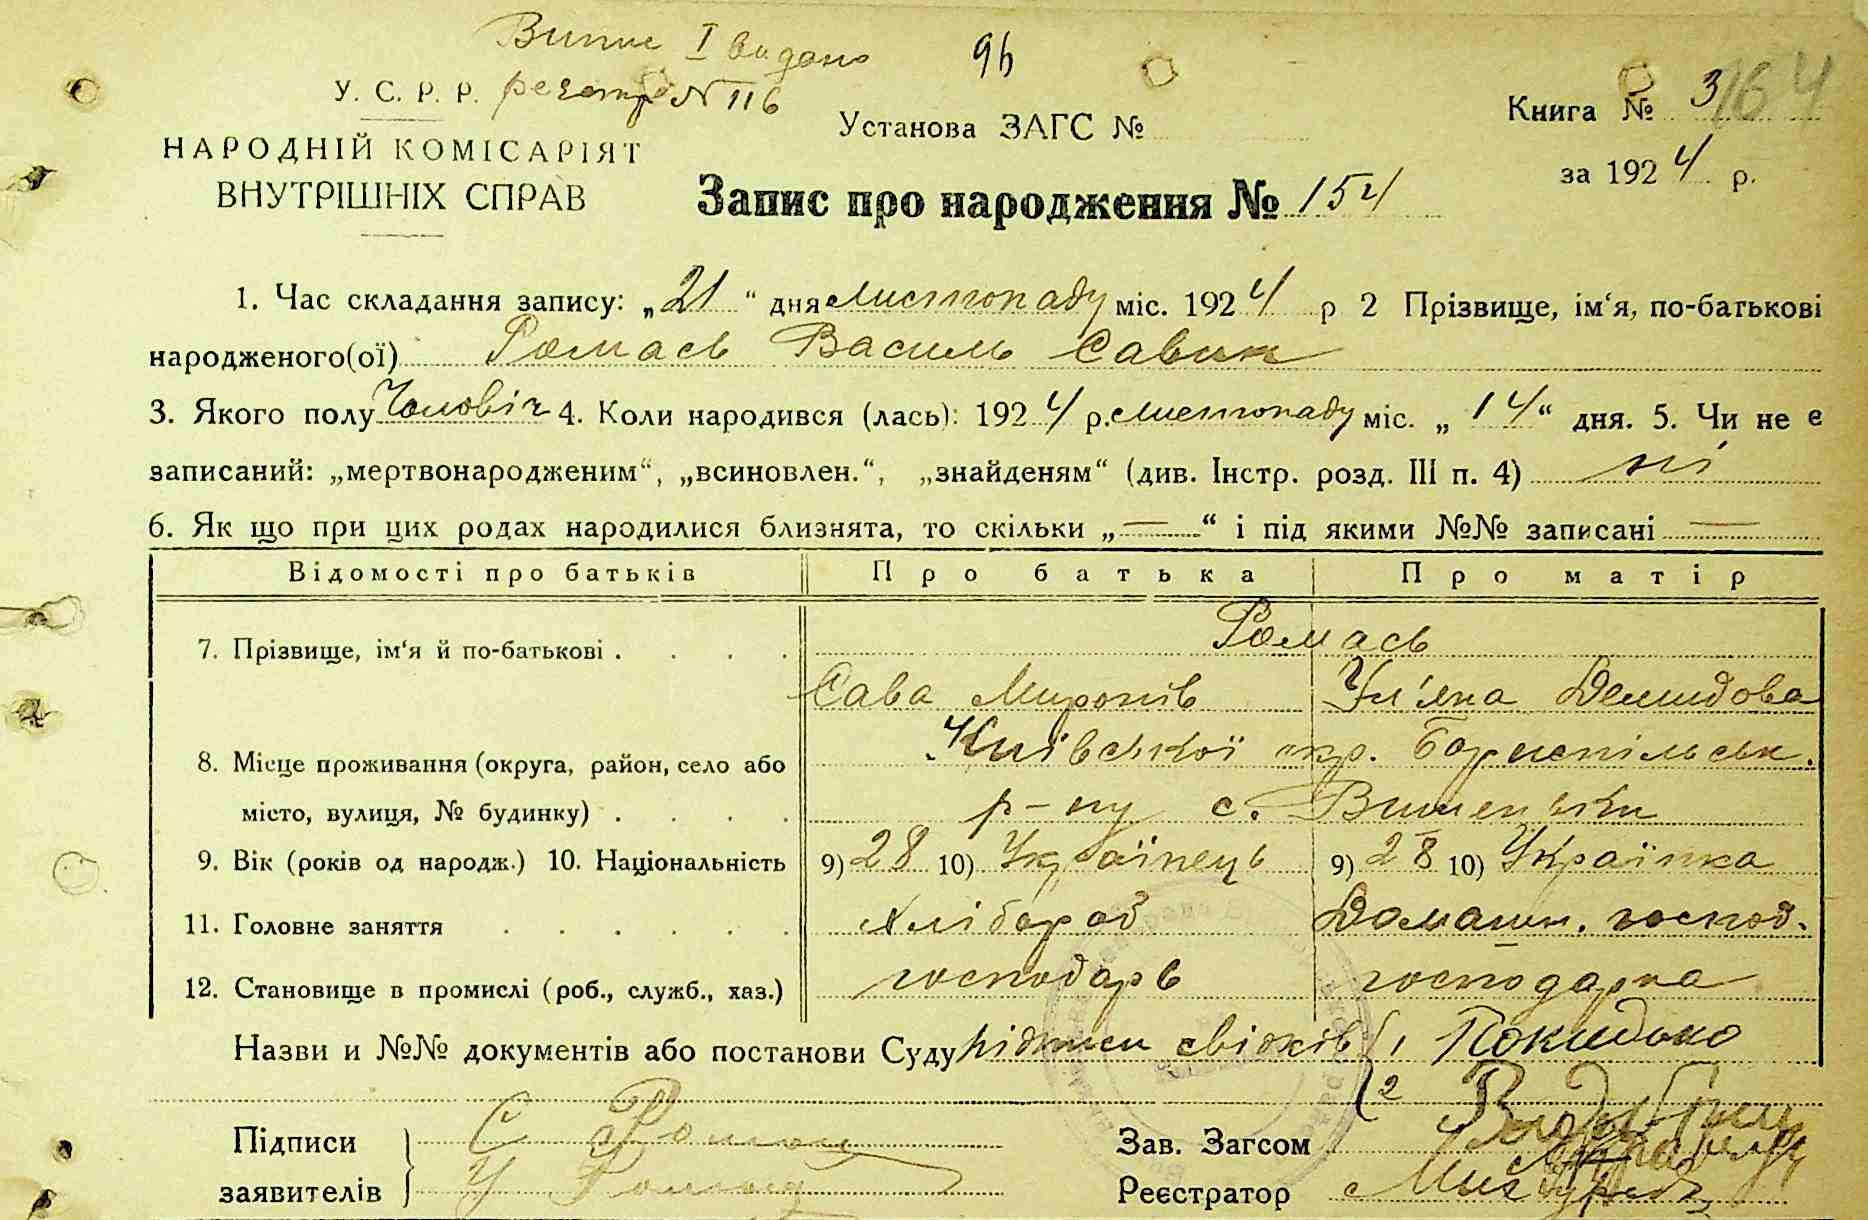 Випис І видано 96
У. С. Р. Р. реєстр № 116
НАРОДНІЙ КОМІСАРІЯТ
ВНУТРІШНІХ СПРАВ
Установа ЗАГС №
Книга № 3 164
за 1924 р.
Запис про народження № 154
1. Час складання запису: „21“ дня листопаду міс. 1924 р 2 Прізвище, ім‘я, по-батькові
народженого(ої) Ромась Василь Савин
3. Якого полу Чоловіч 4. Коли народився (лась): 1924 р. листопаду міс. „14“ дня. 5. Чи не є
записаний: „мертвонародженим“, „всиновлен.“, „знайденям“ (див. Інстр. розд. III п. 4) ні
6. Як що при цих родах народилися близнята, то скільки „—“ і під якими №№ записані —
Відомості про батьків Про батька Про матір
7. Прізвище, ім‘я й по-батькові . . . . Ромась
Сава Миронів Ул'яна Демидова
8. Місце проживання (округа, район, село або Київської окр. Бориспільськ.
місто, вулиця, № будинку) . . . . р-ну с. Вишеньки
9. Вік (років од народж.) 10. Національність 9) 28 10) Українець 9) 28 10) Українка
11. Головне заняття . . . . . . Хлібороб Домашн. господ.
12. Становище в промислі (роб., служб., хаз.) господарь господарка
Назви и №№ документів або постанови Суду підписи свідків 1 Покидько
2
Підписи С Ромась
заявителів У Ромась
Зав. Загсом
Реєстратор